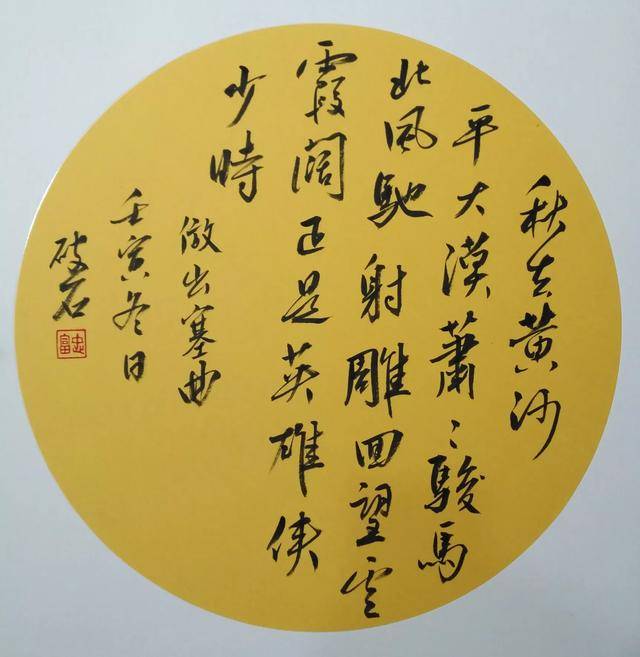 秋去黄沙
平大漠蕭〻駿馬
北风馳射雕回望雲
霞阔正是英雄侠
少時
倣出塞曲
壬寅冬日
破石
忠富